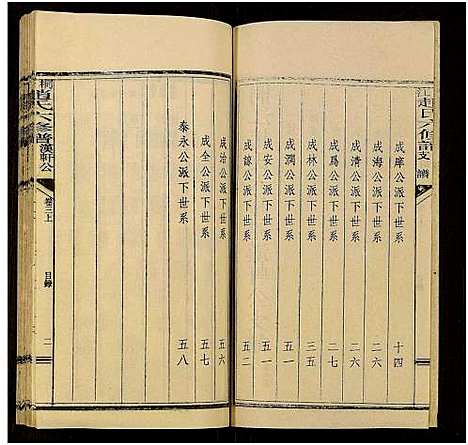 江趙氏六修譜 支譜
成岸公派下世系 十四
成海公派下世系 二六
成清公派下世系 二六
成馬公派下世系 二七
成林公派下世系 三五
成潤公派下世系 五一
成安公派下世系 五一
成鎵公派下世系 五二
成治公派下世系 五六
成全公派下世系 五七
泰永公派下世系 五八
桐 趙氏六修譜 漢軒公 卷三上 目錄 二